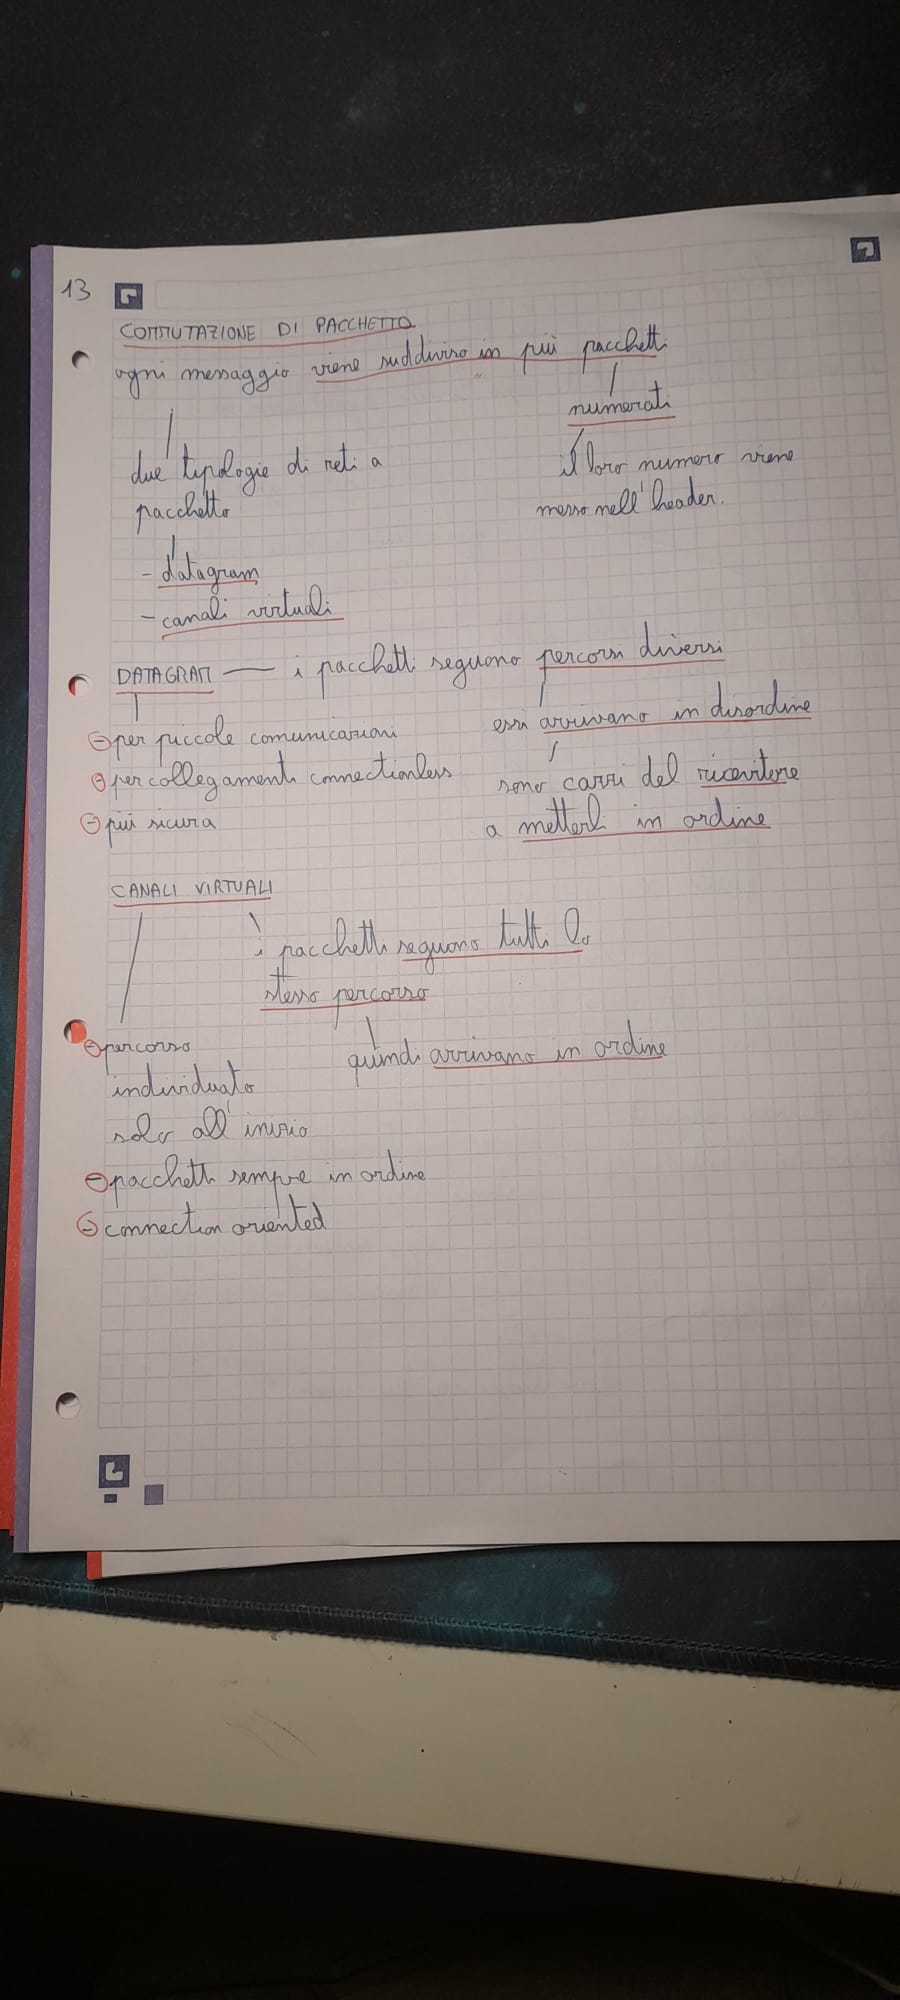 13
COMMUTAZIONE DI PACCHETTO
ogni messaggio viene suddiviso in più pacchetti
numerati
il loro numero viene
messo nell'header.
due tipologie di reti a
pacchetto
- datagram
- canali virtuali
DATAGRAM — i pacchetti seguono percorsi diversi
essi arrivano in disordine
sono cazzi del ricevitore
a metterli in ordine
- per piccole comunicazioni
- per collegamenti connectionless
- più sicura
CANALI VIRTUALI
i pacchetti seguono tutti lo
stesso percorso
quindi arrivano in ordine
- percorso
individuato
solo all'inizio
- pacchetti sempre in ordine
- connection oriented